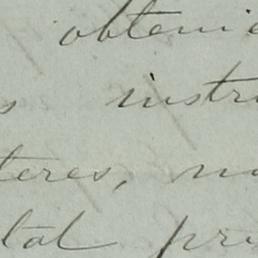 obteni
s instru
teres, no
tal pri